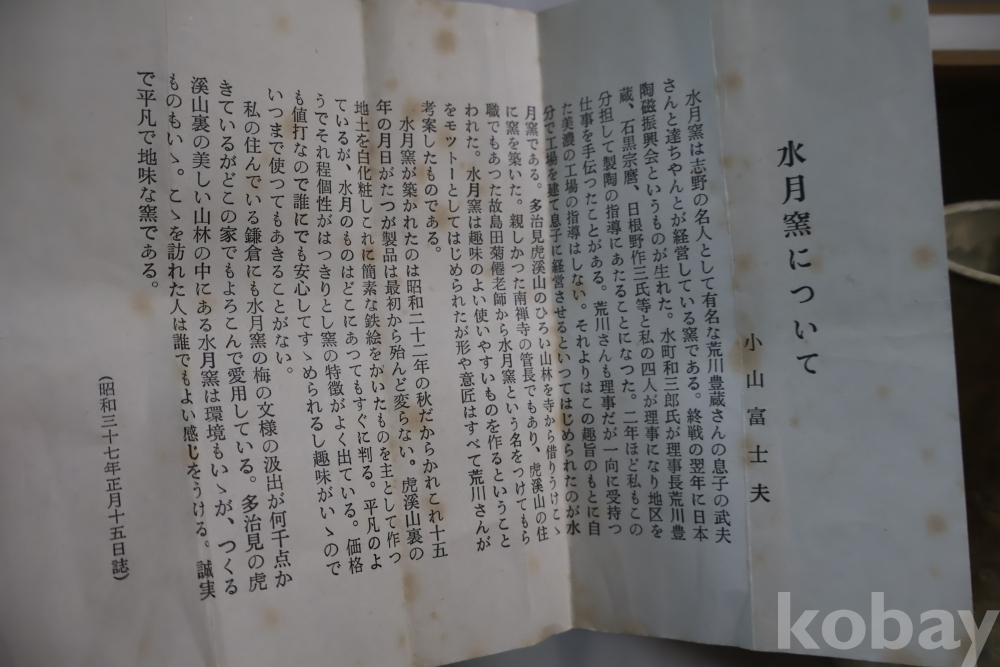 水月窯について
小山富士夫
水月窯は志野の名人として有名な荒川豊蔵さんの息子の武夫
さんと達ちやんとが経営している窯である。終戦の翌年に日本
陶磁振興会というものが生れた。水町和三郎氏が理事長荒川豊
蔵、石黒宗麿、日根野作三氏等と私の四人が理事になり地区を
分担して製陶の指導にあたることになつた。二年ほど私もこの
仕事を手伝つたことがある。荒川さんも理事だが一向に受持つ
た美濃の工場の指導はしない。それよりはこの趣旨のもとに自
分で工場を建て息子に経営させるといつてはじめられたのが水
月窯である。多治見虎溪山のひろい山林を寺から借りうけこゝ
に窯を築いた。親しかつた南禅寺の管長でもあり、虎溪山の住
職でもあつた故島田菊僊老師から水月窯という名をつけてもら
われた。水月窯は趣味のよい使いやすいものを作るということ
をモツトーとしてはじめられたが形や意匠はすべて荒川さんが
考案したものである。
水月窯が築かれたのは昭和二十二年の秋だからかれこれ十五
年の月日がたつが製品は最初から殆んど変らない。虎溪山裏の
地土を白化粧しこれに簡素な鉄絵をかいたものを主として作つ
ているが、水月のものはどこにあつてもすぐに判る。平凡のよ
うでそれ程個性がはつきりとし窯の特徴がよく出ている。価格
も値打なので誰にでも安心してすゝめられるし趣味がいゝので
いつまで使つてもあきることがない。
私の住んでいる鎌倉にも水月窯の梅の文様の汲出が何千点か
きているがどこの家でもよろこんで愛用している。多治見の虎
溪山裏の美しい山林の中にある水月窯は環境もいゝが、つくる
ものもいゝ。こゝを訪れた人は誰でもよい感じをうける。誠実
で平凡で地味な窯である。
(昭和三十七年正月十五日誌)
kobay